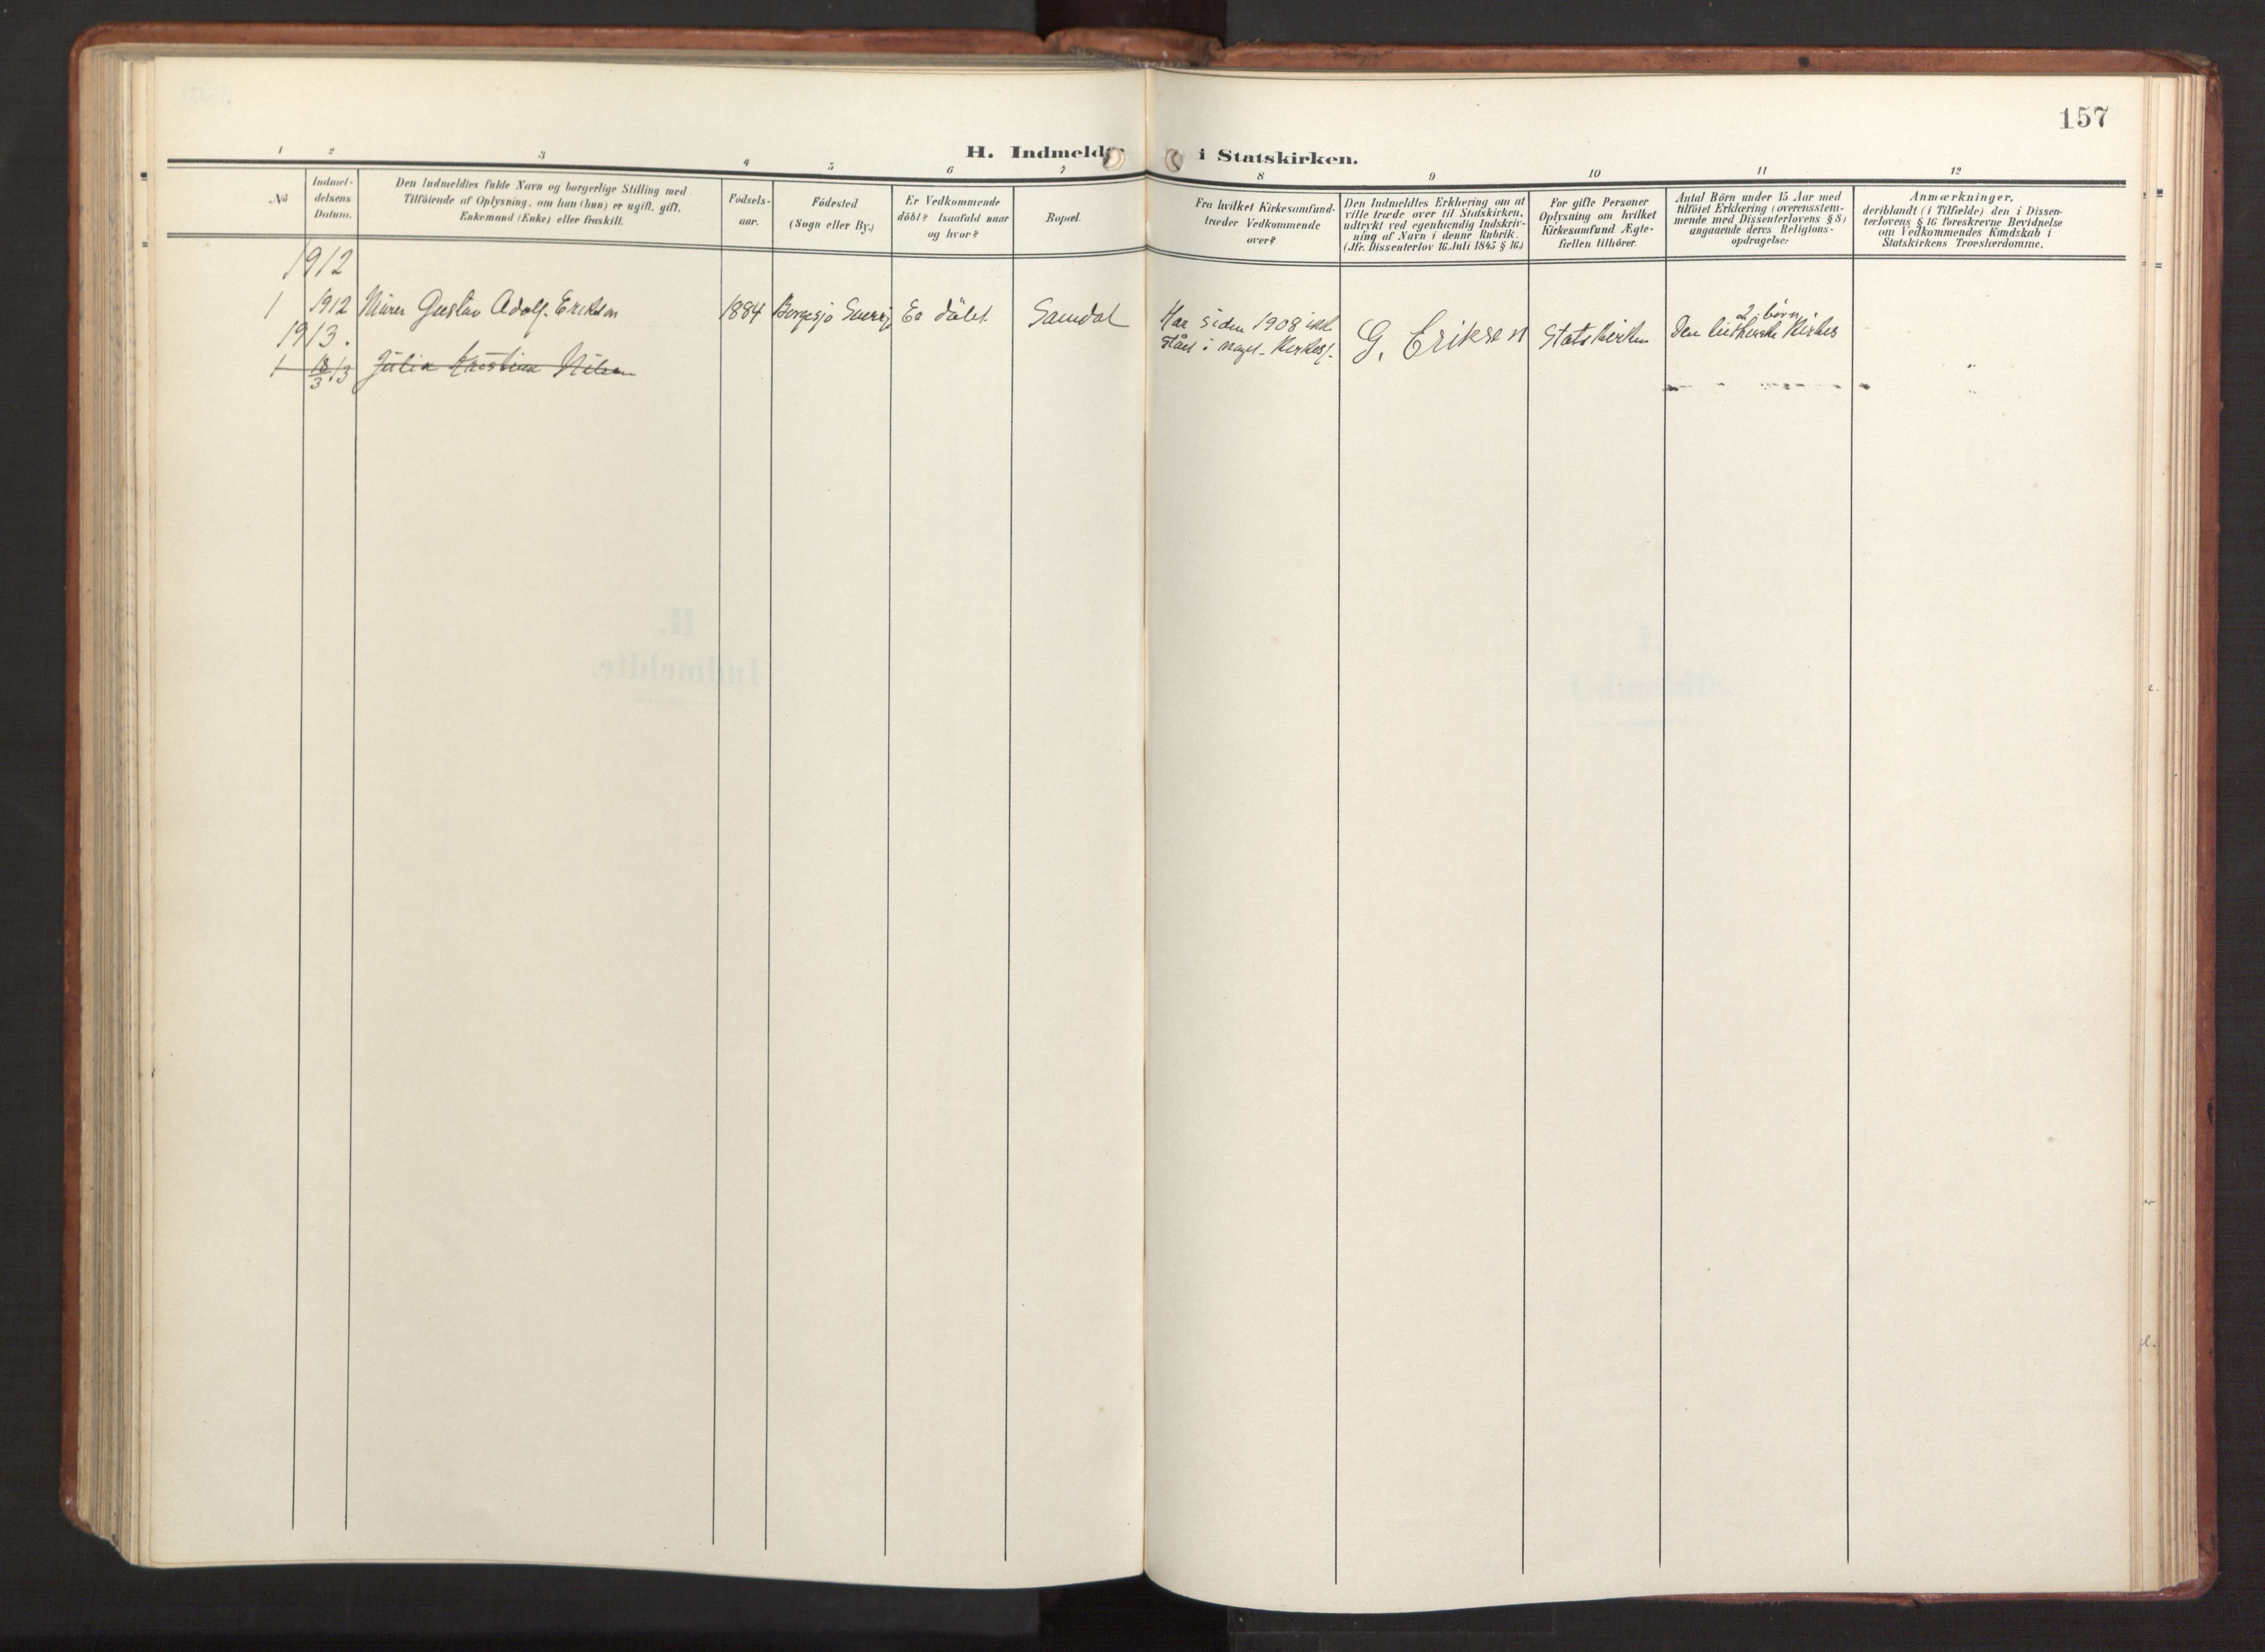 157
H. Indmeldte i Statskirken.
1 2 3 4 5 6 7 8 9 10 11 12
No
Indmel-
delsens
Datum.
Den Indmeldtes fulde Navn og borgerlige Stilling med
Tilföiende af Oplysning, om han (hun) er ugift, gift,
Enkemand (Enke) eller fraskilt.
Födsels-
aar.
Födested
(Sogn eller By.)
Er Vedkommende
döbt? Isaafald naar
og hvor?
Bopæl.
Fra hvilket Kirkesamfund-
træder Vedkommende
over?
Den Indmeldtes Erklæring om at
ville træde over til Statskirken,
udtrykt ved egenhændig Indskriv-
ning af Navn i denne Rubrik.
(Jfr. Dissenterlov 16. Juli 1845 § 16.)
For gifte Personer
Oplysning om hvilket
Kirkesamfund Ægte-
fællen tilhörer.
Antal Börn under 15 Aar med
tilföiet Erklæring (overensstem-
mende med Dissenterlovens § 8)
angaaende deres Religions-
opdragelse:
Anmærkninger,
deriblandt (i Tilfælde) den i Dissen-
terlovens § 16 foreskrevne Bevidnelse
om Vedkommendes Kundskab i
Statskirkens Troeslærdomme.
1912
1 1912 Murer Gustav Adolf Erikson 1884 Borgesjø Sverig Er døbt
Har siden 1908 ikke
stået i noget Kirkes.
G. Eriksen
Statskirken
2 børn
Den lutherske Kirkes
1913.
1 18/3 13 Julia Kristine Nilsen